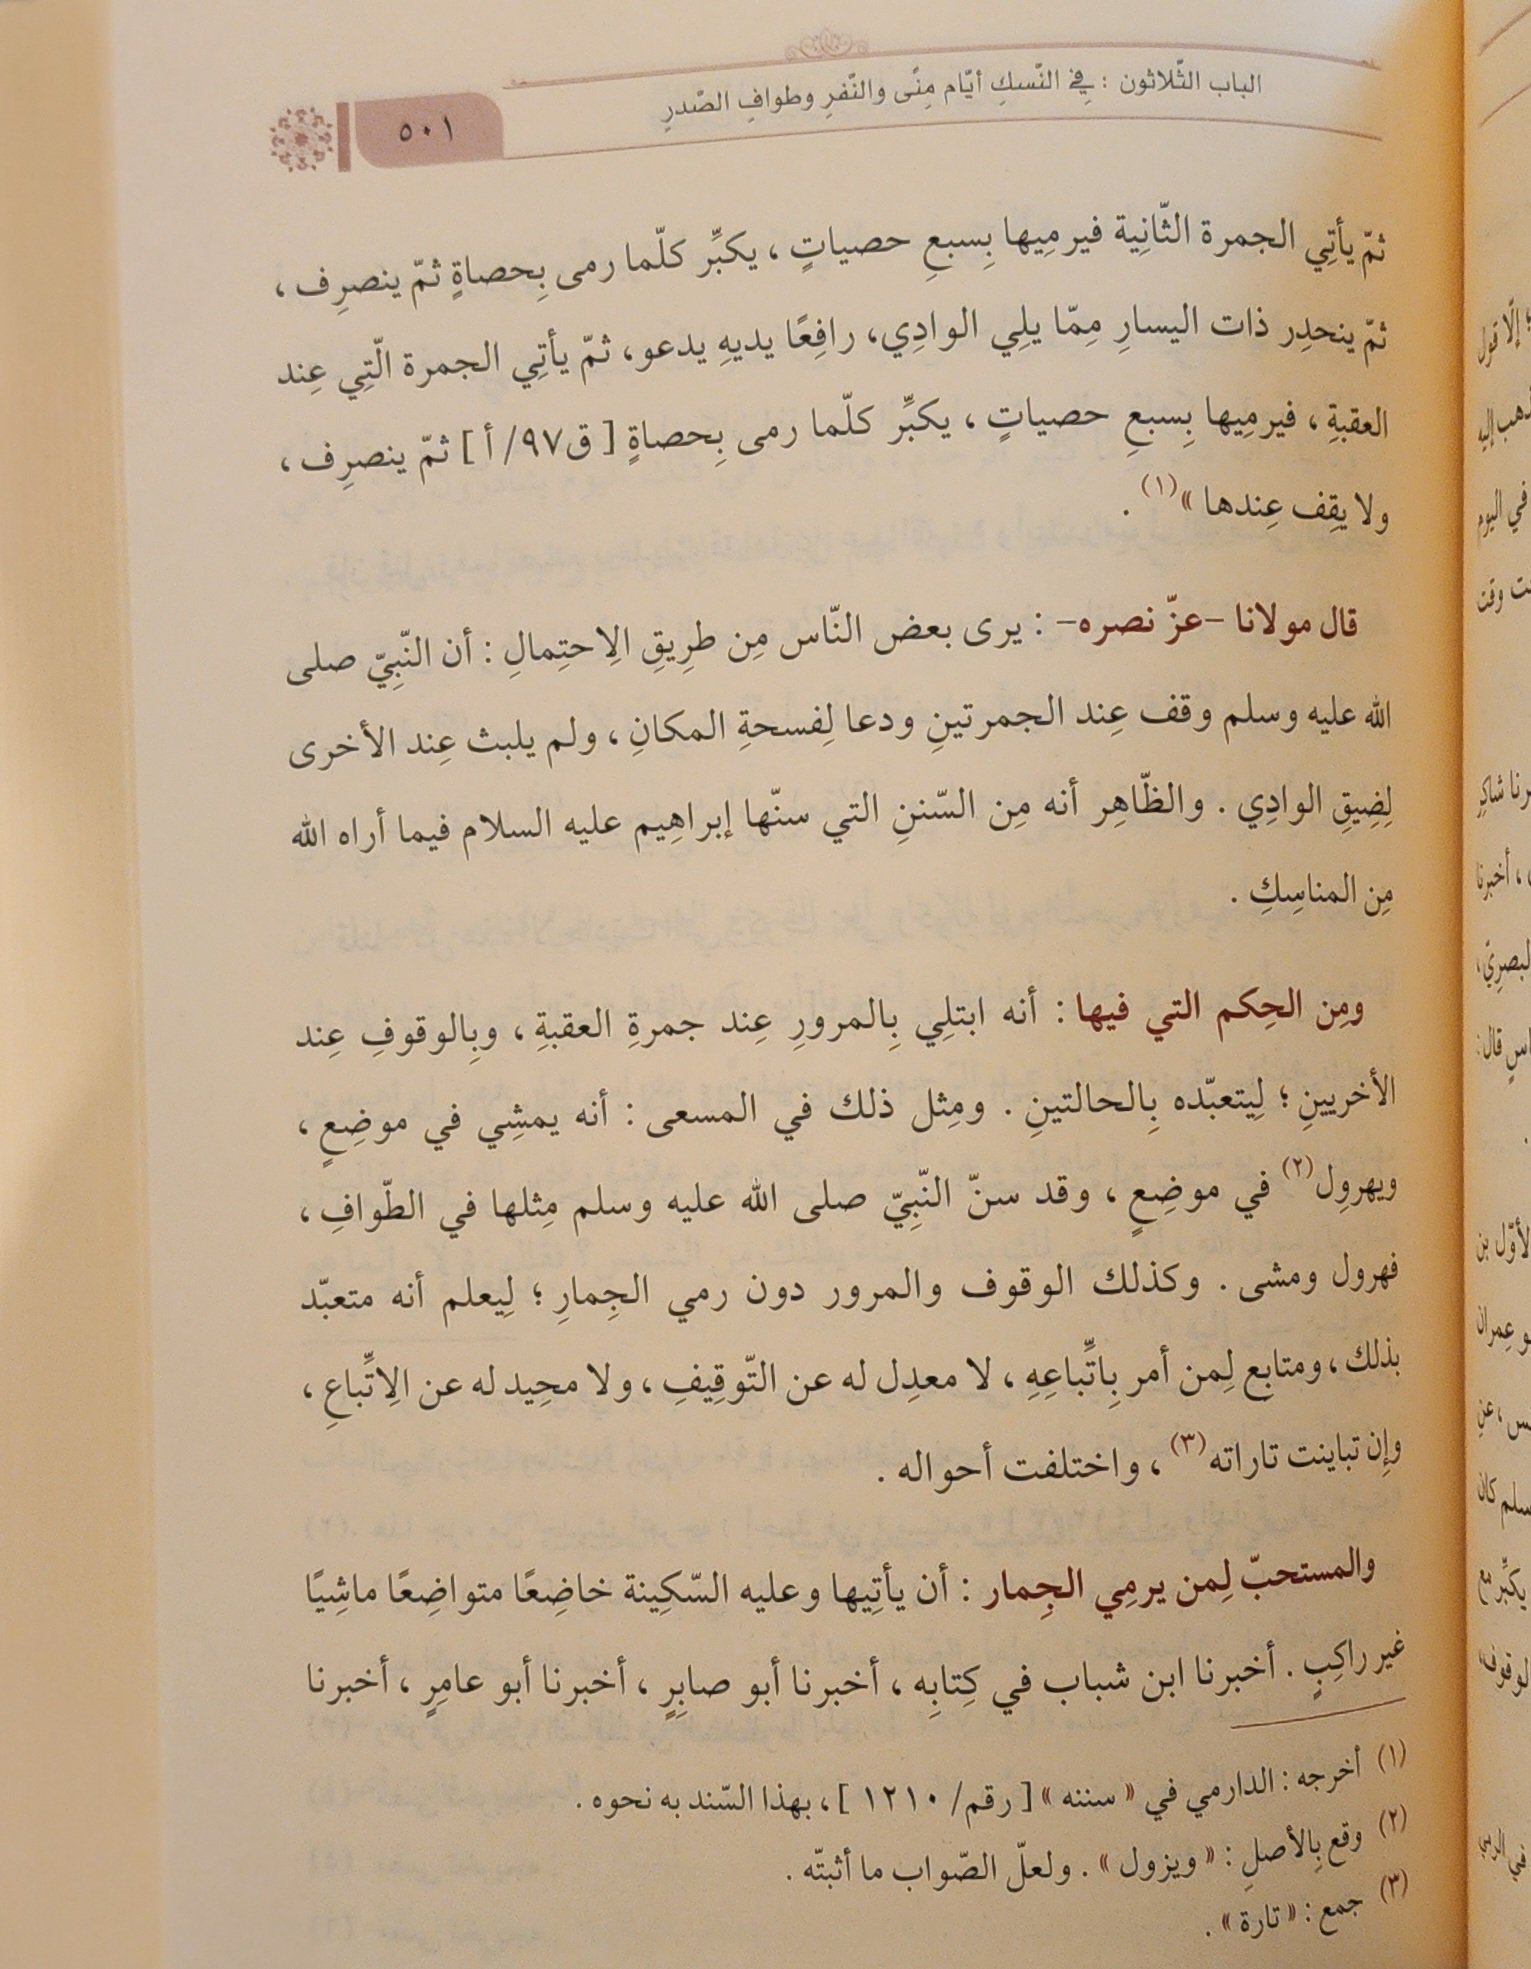 الباب الثّلاثون : فِي النّسكِ أيّام مِنًى والنّفرِ وطوافِ الصّدرِ
٥٠١
ثمّ يأتِي الجمرة الثّانِية فيرمِيها بِسبعِ حصياتٍ ، يكبِّر كلّما رمى بِحصاةٍ ثمّ ينصرِف ،
ثمّ ينحدِر ذات اليسارِ مِمّا يلِي الوادِي، رافِعًا يديهِ يدعو، ثمّ يأتِي الجمرة الّتِي عِند
العقبةِ ، فيرمِيها بِسبعِ حصياتٍ ، يكبِّر كلّما رمى بِحصاةٍ [ ق٩٧/ أ ] ثمّ ينصرِف ،
ولا يقِف عِندها »(١) .
قال مولانا –عزّ نصره– : يرى بعض النّاس مِن طرِيقِ الِاحتِمالِ : أن النّبِيّ صلى
الله عليه وسلم وقف عِند الجمرتينِ ودعا لِفسحةِ المكانِ ، ولم يلبث عِند الأخرى
لِضِيقِ الوادِي . والظّاهِر أنه مِن السّننِ التي سنّها إبراهِيم عليه السلام فيما أراه الله
مِن المناسِكِ .
ومِن الحِكم التي فيها : أنه ابتلِي بِالمرورِ عِند جمرةِ العقبةِ ، وبِالوقوفِ عِند
الأخريينِ ؛ لِيتعبّده بِالحالتينِ . ومِثل ذلك في المسعى : أنه يمشِي في موضِعٍ ،
ويهرول(٢) في موضِعٍ ، وقد سنّ النّبِيّ صلى الله عليه وسلم مِثلها في الطّوافِ ،
فهرول ومشى . وكذلك الوقوف والمرور دون رمي الجِمارِ ؛ لِيعلم أنه متعبّد
بذلك ، ومتابع لِمن أمر بِاتِّباعِهِ ، لا معدِل له عن التّوقِيفِ ، ولا محِيد له عن الِاتِّباعِ ،
وإِن تباينت تاراته(٣) ، واختلفت أحواله .
والمستحبّ لِمن يرمِي الجِمار : أن يأتِيها وعليه السّكِينة خاضِعًا متواضِعًا ماشِيًا
غير راكِبٍ . أخبرنا ابن شباب في كِتابِه ، أخبرنا أبو صابِرٍ ، أخبرنا أبو عامِرٍ ، أخبرنا
(١) أخرجه : الدارمي في « سننه » [ رقم/ ١٢١٠ ] ، بهذا السّند به نحوه .
(٢) وقع بِالأصلِ : « ويزول » . ولعلّ الصّواب ما أثبتّه .
(٣) جمع : « تارة » .